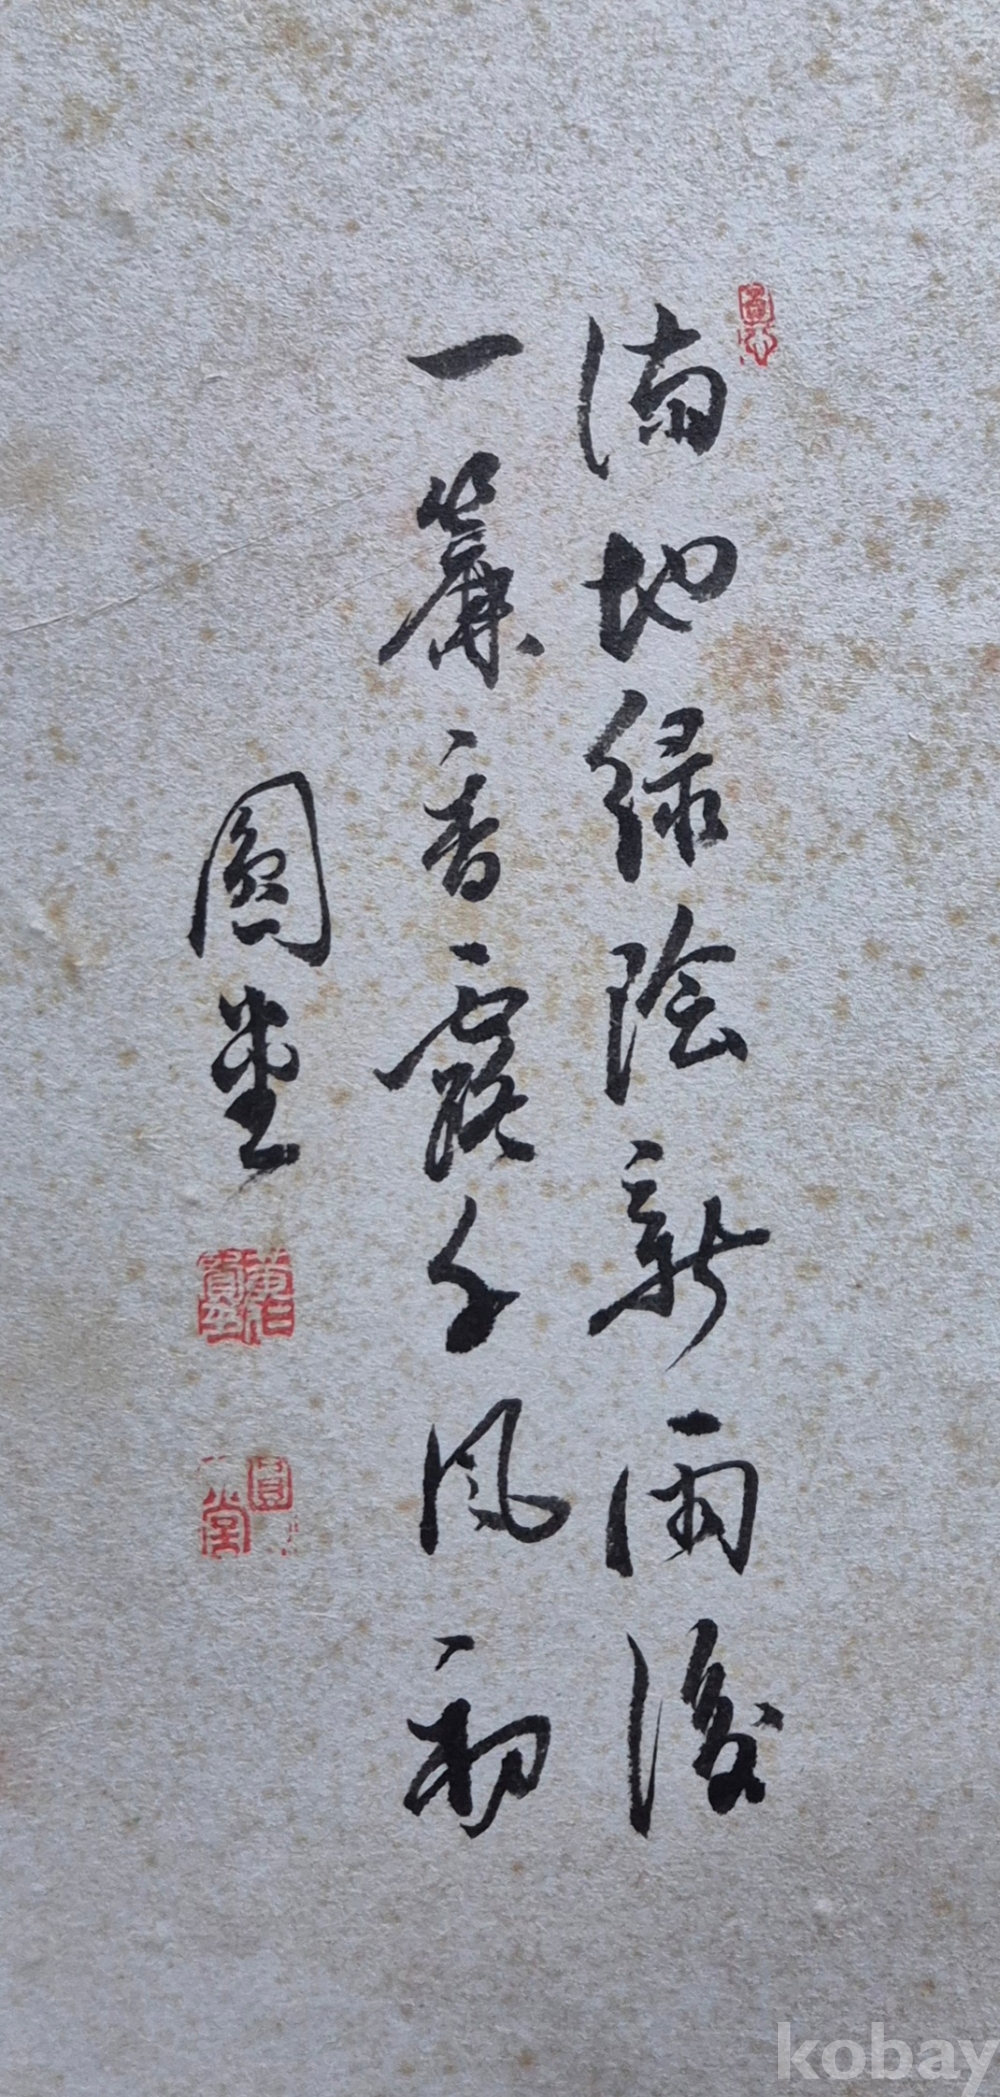 滿地綠陰新雨後
一簾香露午風初
圓堂
kobay